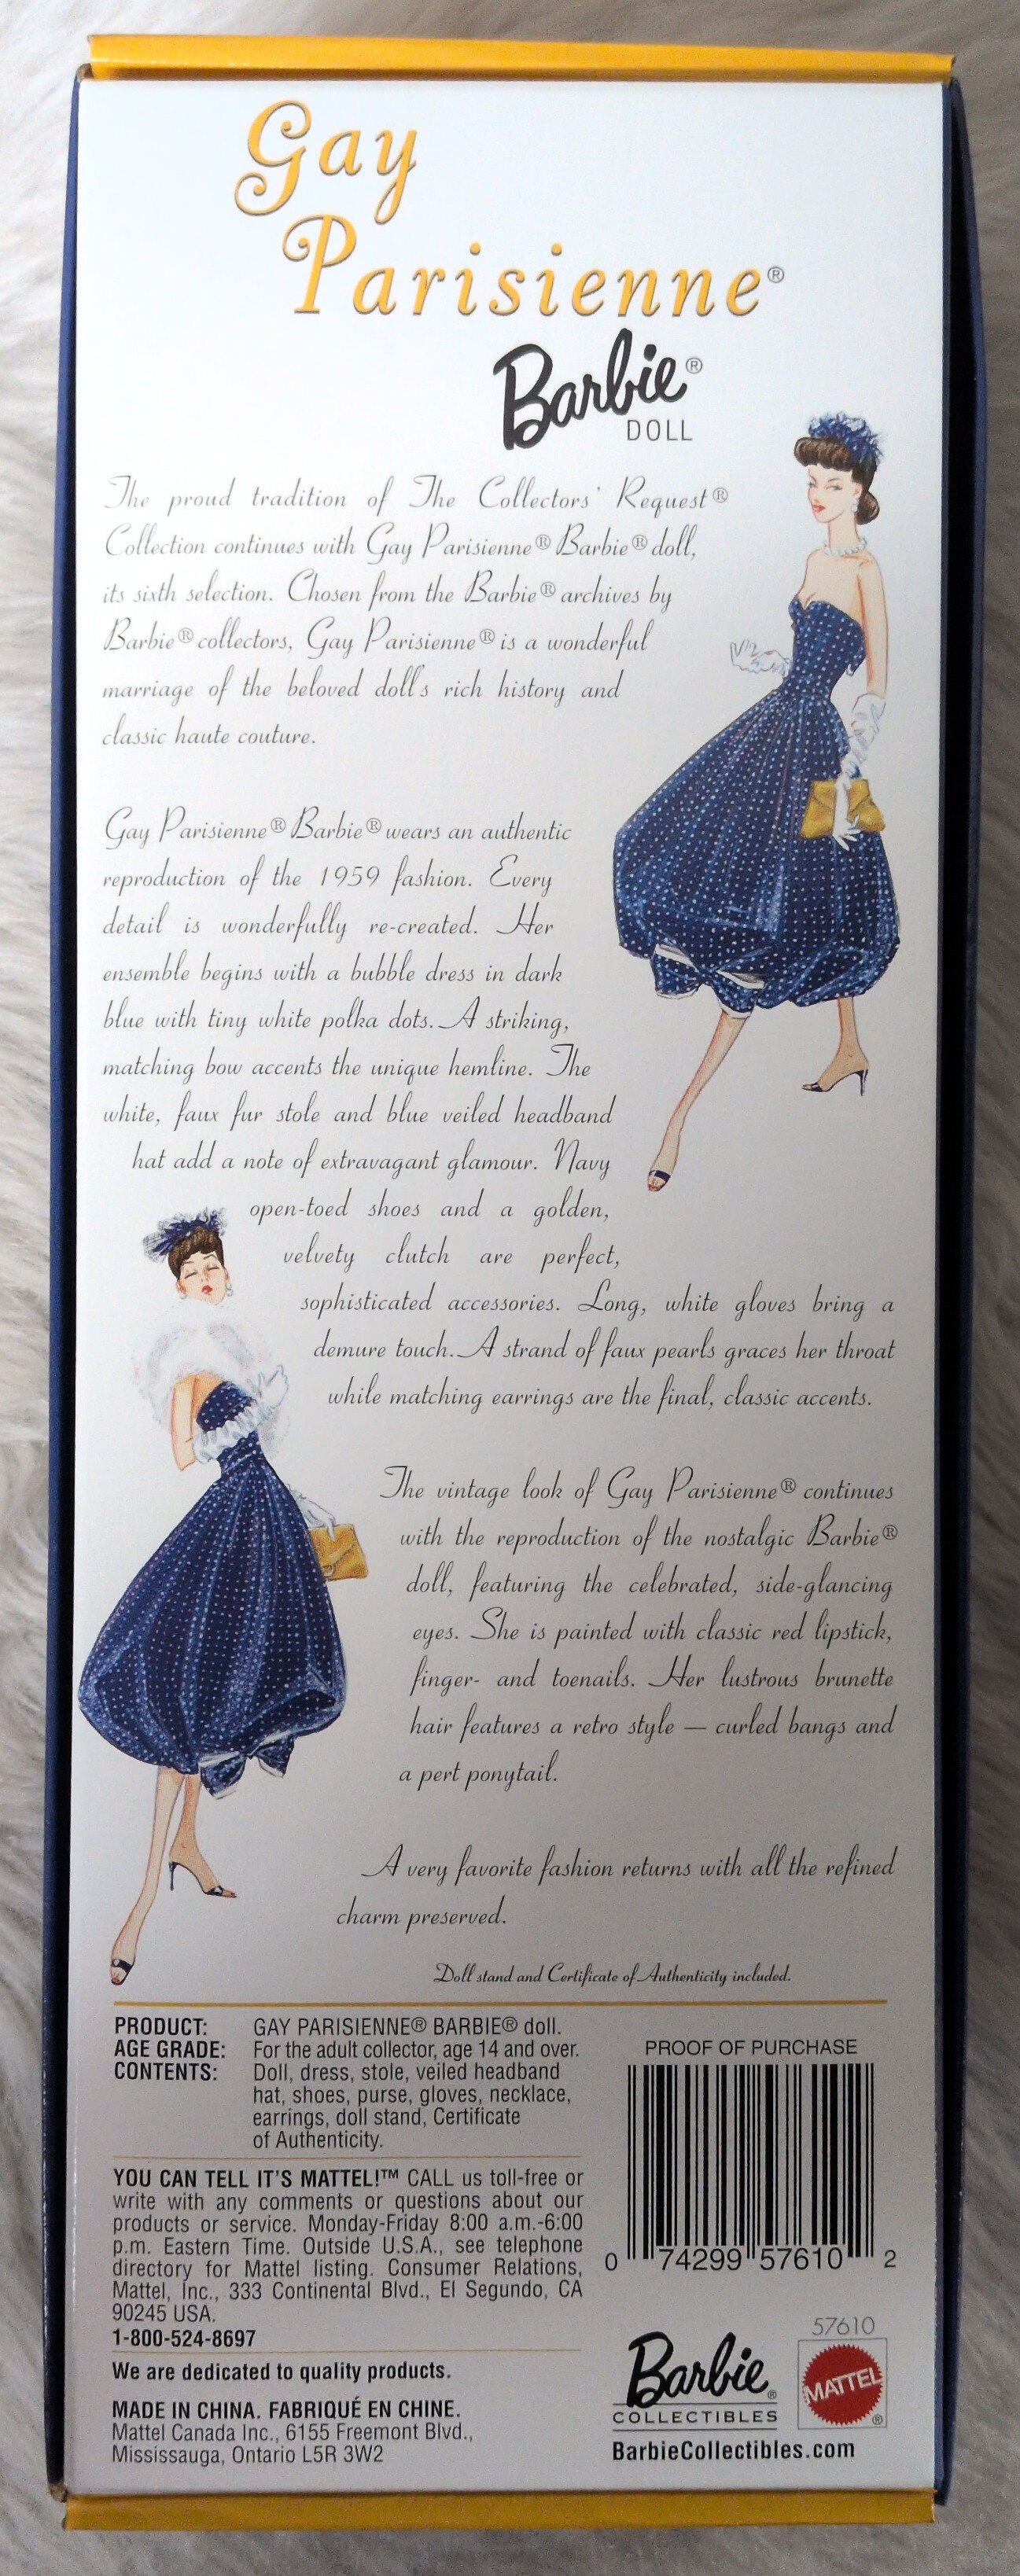 Gay
Parisienne®
Barbie®
DOLL
The proud tradition of The Collectors' Request®
Collection continues with Gay Parisienne® Barbie® doll,
its sixth selection. Chosen from the Barbie® archives by
Barbie® collectors, Gay Parisienne® is a wonderful
marriage of the beloved doll's rich history and
classic haute couture.
Gay Parisienne® Barbie® wears an authentic
reproduction of the 1959 fashion. Every
detail is wonderfully re-created. Her
ensemble begins with a bubble dress in dark
blue with tiny white polka dots. A striking,
matching bow accents the unique hemline. The
white, faux fur stole and blue veiled headband
hat add a note of extravagant glamour. Navy
open-toed shoes and a golden,
velvety clutch are perfect,
sophisticated accessories. Long, white gloves bring a
demure touch. A strand of faux pearls graces her throat
while matching earrings are the final, classic accents.
The vintage look of Gay Parisienne® continues
with the reproduction of the nostalgic Barbie®
doll, featuring the celebrated, side-glancing
eyes. She is painted with classic red lipstick,
finger- and toenails. Her lustrous brunette
hair features a retro style — curled bangs and
a pert ponytail.
A very favorite fashion returns with all the refined
charm preserved.
Doll stand and Certificate of Authenticity included.
PRODUCT: GAY PARISIENNE® BARBIE® doll.
AGE GRADE: For the adult collector, age 14 and over.
CONTENTS: Doll, dress, stole, veiled headband
hat, shoes, purse, gloves, necklace,
earrings, doll stand, Certificate
of Authenticity.
YOU CAN TELL IT'S MATTEL!™ CALL us toll-free or
write with any comments or questions about our
products or service. Monday-Friday 8:00 a.m.-6:00
p.m. Eastern Time. Outside U.S.A., see telephone
directory for Mattel listing. Consumer Relations,
Mattel, Inc., 333 Continental Blvd., El Segundo, CA
90245 USA.
1-800-524-8697
We are dedicated to quality products.
MADE IN CHINA. FABRIQUÉ EN CHINE.
Mattel Canada Inc., 6155 Freemont Blvd.,
Mississauga, Ontario L5R 3W2
PROOF OF PURCHASE
0 74299 57610 2
57610
Barbie®
COLLECTIBLES
MATTEL®
BarbieCollectibles.com